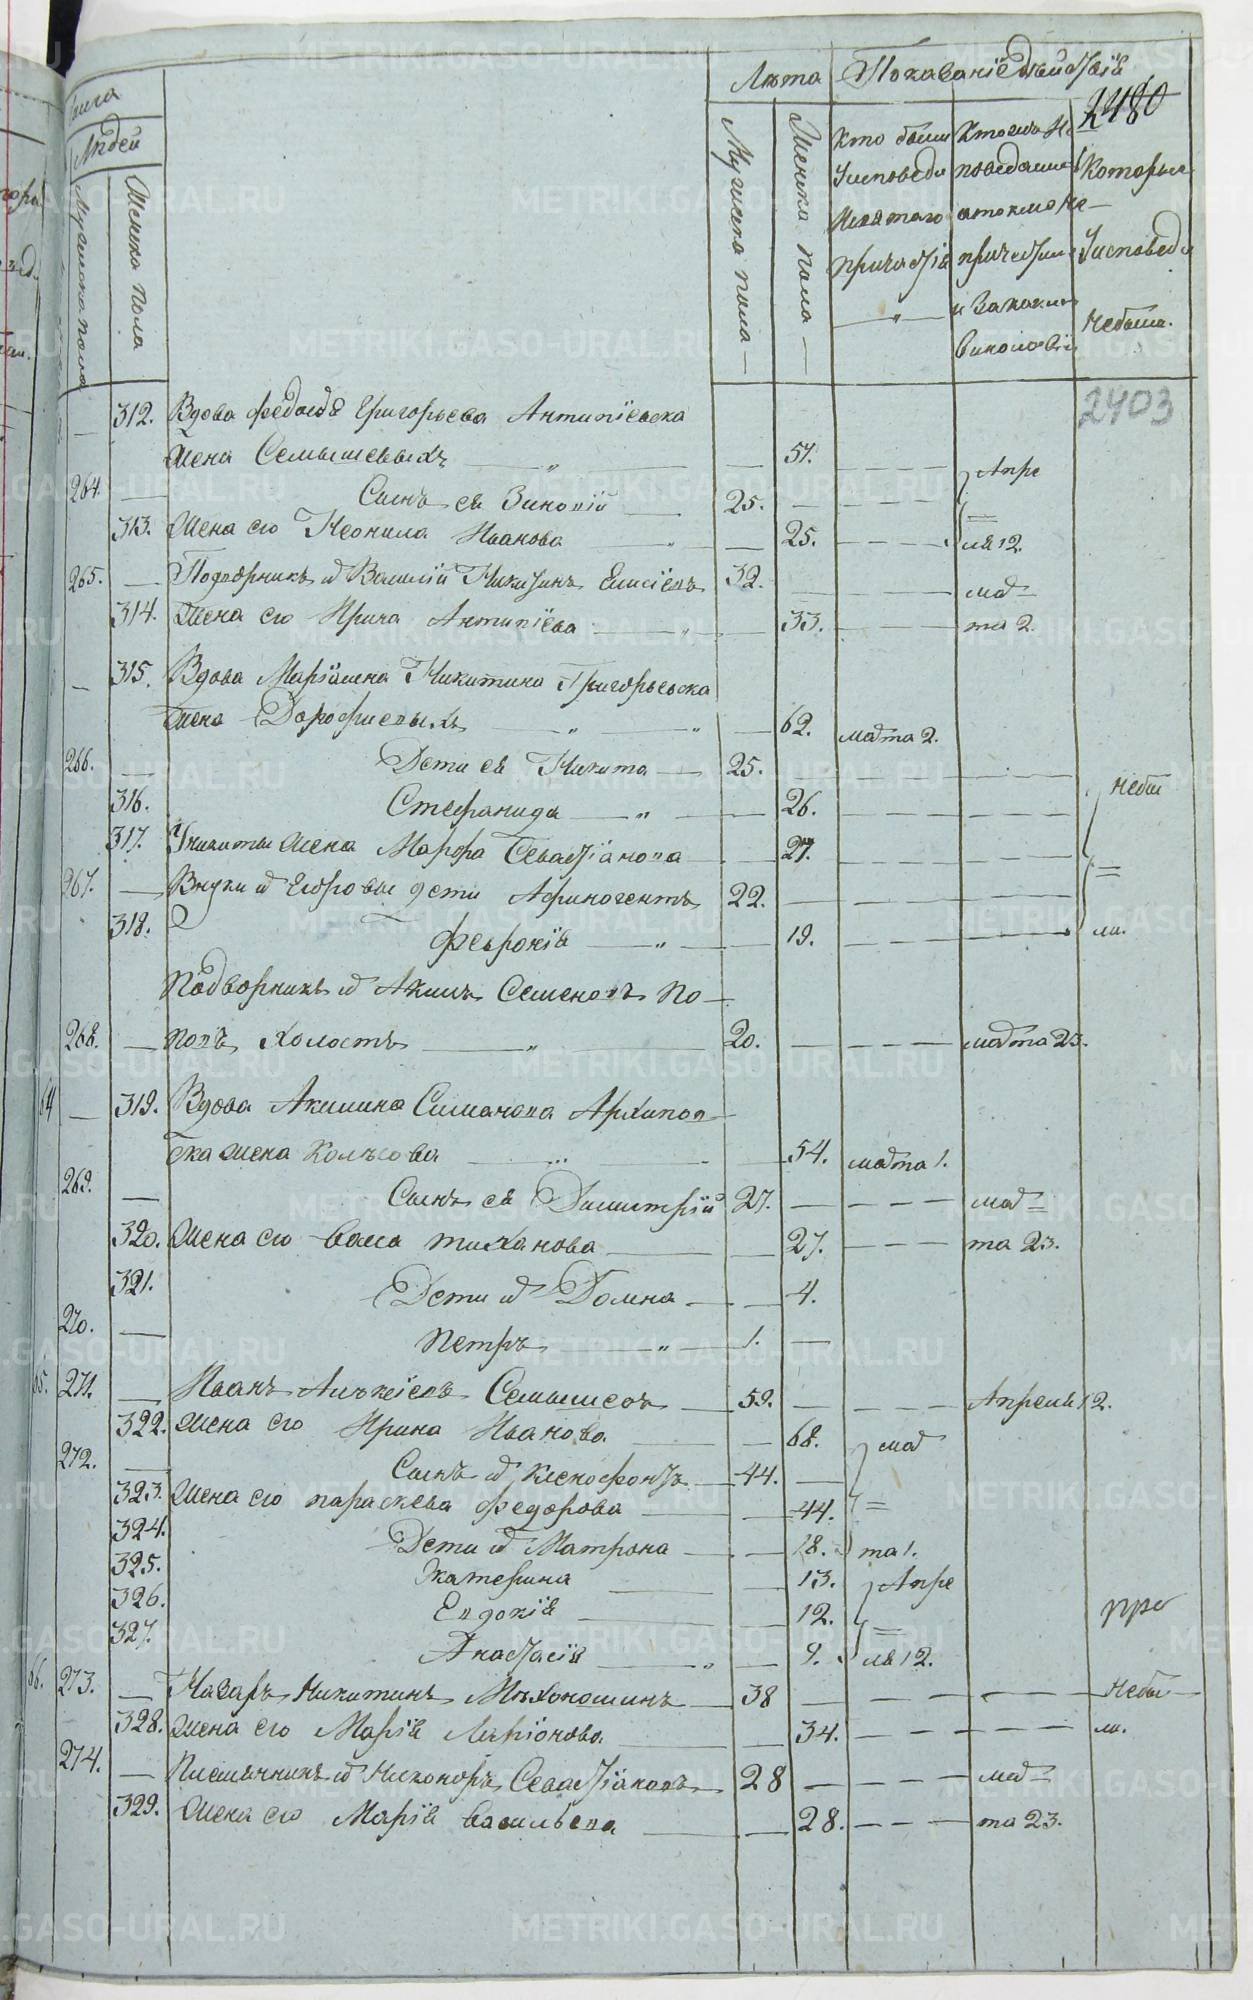 Числа
Людей
Мужеска пола
Женска пола
Лѣта
Показаніе дѣйствія
2480
Мужеска пола
Женска пола
Кто были Уисповеди Исвятаго Причастія
Которые Уисповеди небыли.
2403
312. Вдова Федосья Григорьева Антипіевска
Жена Семышевыхъ 57. Апре
264. Сынъ ея Зиновій 25.
313. Жена его Неонила Иванова 25. ля 12.
265. Подворникъ Василій Никитинъ Елисіевъ 32. мар
314. Жена его Ирина Антипіева 33. та 2.
315. Вдова Маріамна Никитина Григорьевска
жена Дорофиевыхъ 62. марта 2.
266. Дети ея Никита 25. небы
316. Стефанида 26.
317. Уникиты жена Марфа Севастіанова 27.
267. Внуки Егоровы дети Афиногентъ 22.
318. Февронія 19. ли.
Подворникъ Акимъ Семеновъ По-
268. повъ Холостъ 20. марта 23.
64 319. Вдова Акилина Симанова Архипов-
ска жена Колѣсова 54. марта 1.
269. Сынъ ея Димитрій 27. мар
320. Жена его Васа Тиханова 27. та 23.
321. Дети Домна 4.
270. Петръ 1.
65. 271. Иванъ Алѣксіевъ Семышевъ 59. Апреля 12.
322. Жена его Ирина Иванова 68. мар
272. Сынъ Ксенофонтъ 44.
323. Жена его Параскева Федорова 44.
324. Дети Матрона 18. та 1.
325. Екатерина 13. Апре
326. Евдокія 12.
327. Анастасія 9. ля 12.
66. 273. Назаръ Никитинъ Мѣхоношинъ 38 небы
328. Жена его Марія Ларіонова 34. ли.
274. Никоноръ Севастіановъ 28 мар
329. Жена его Марія Васильева 28. та 23.